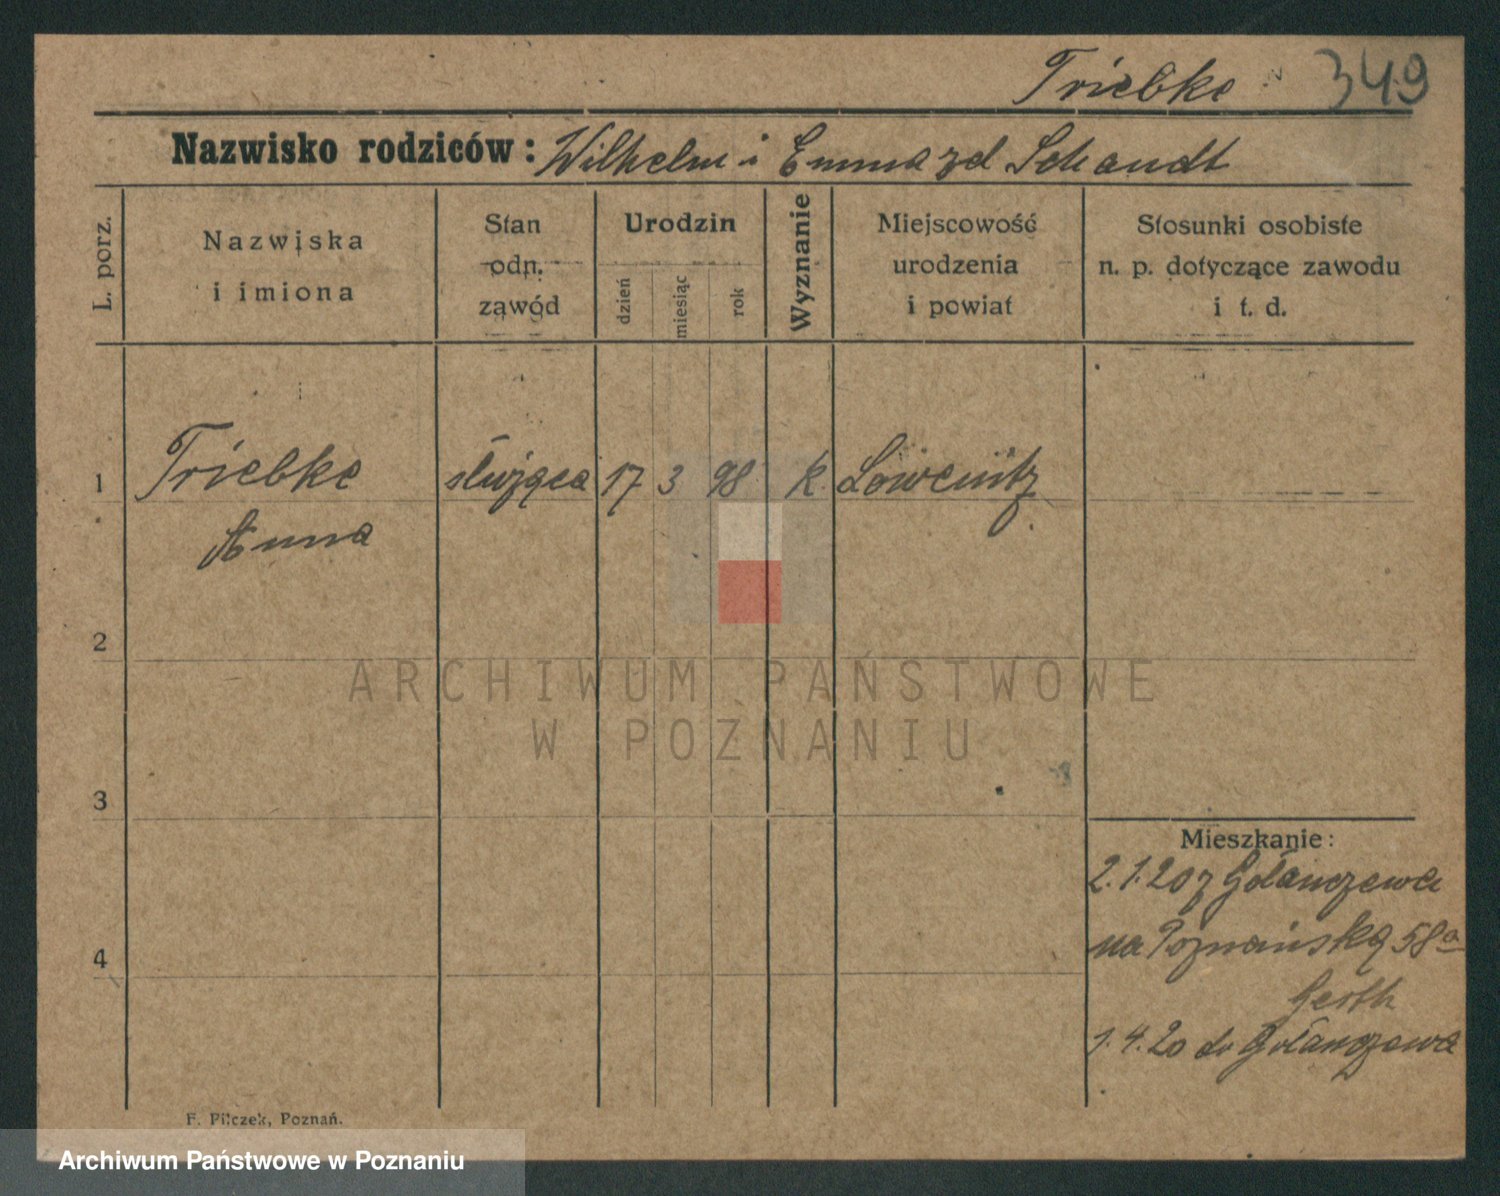 Triebke 349
Nazwisko rodziców: Wilhelm i Emma zd Schandt
L. porz.
Nazwiska
i imiona
Stan
odn.
zawód
Urodzin
dzień
miesiąc
rok
Wyznanie
Miejscowość
urodzenia
i powiat
Stosunki osobiste
n. p. dotyczące zawodu
i t. d.
1 Triebke służąca 17 3 98 k. Lowenitz
Anna
2
3
4
Mieszkanie:
2.1.20 z Golanczewa
na Poznańską 58a
Gerth
1.4.20 do Golanczewa
F. Pilczek, Poznań.
ARCHIWUM PAŃSTWOWE
W POZNANIU
Archiwum Państwowe w Poznaniu